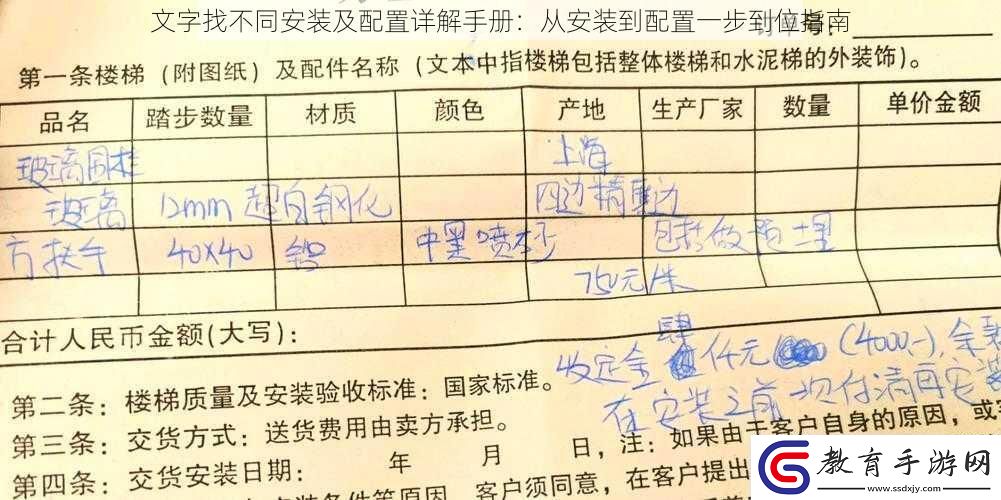 文字找不同安装及配置详解手册：从安装到配置一步到位指南
第一条楼梯（附图纸）及配件名称（文本中指楼梯包括整体楼梯和水泥梯的外装饰）。
品名 踏步数量 材质 颜色 产地 生产厂家 数量 单价金额
玻璃围栏 上海
玻璃 12mm 超白钢化 四边精磨边
方扶手 40×40 铝 中黑喷砂 包括做预埋
750元/米
合计人民币金额(大写)：
肆
收定金 仟元 (4000-),余款
第二条：楼梯质量及安装验收标准：国家标准。
在安装之前一次付清再安装
第三条：交货方式：送货费用由卖方承担。
第四条：交货安装日期： 年 月 日，注：如果由于客户自身的原因，或
客户须同意，在客户提出
教育手游网
www.ssdxjy.com